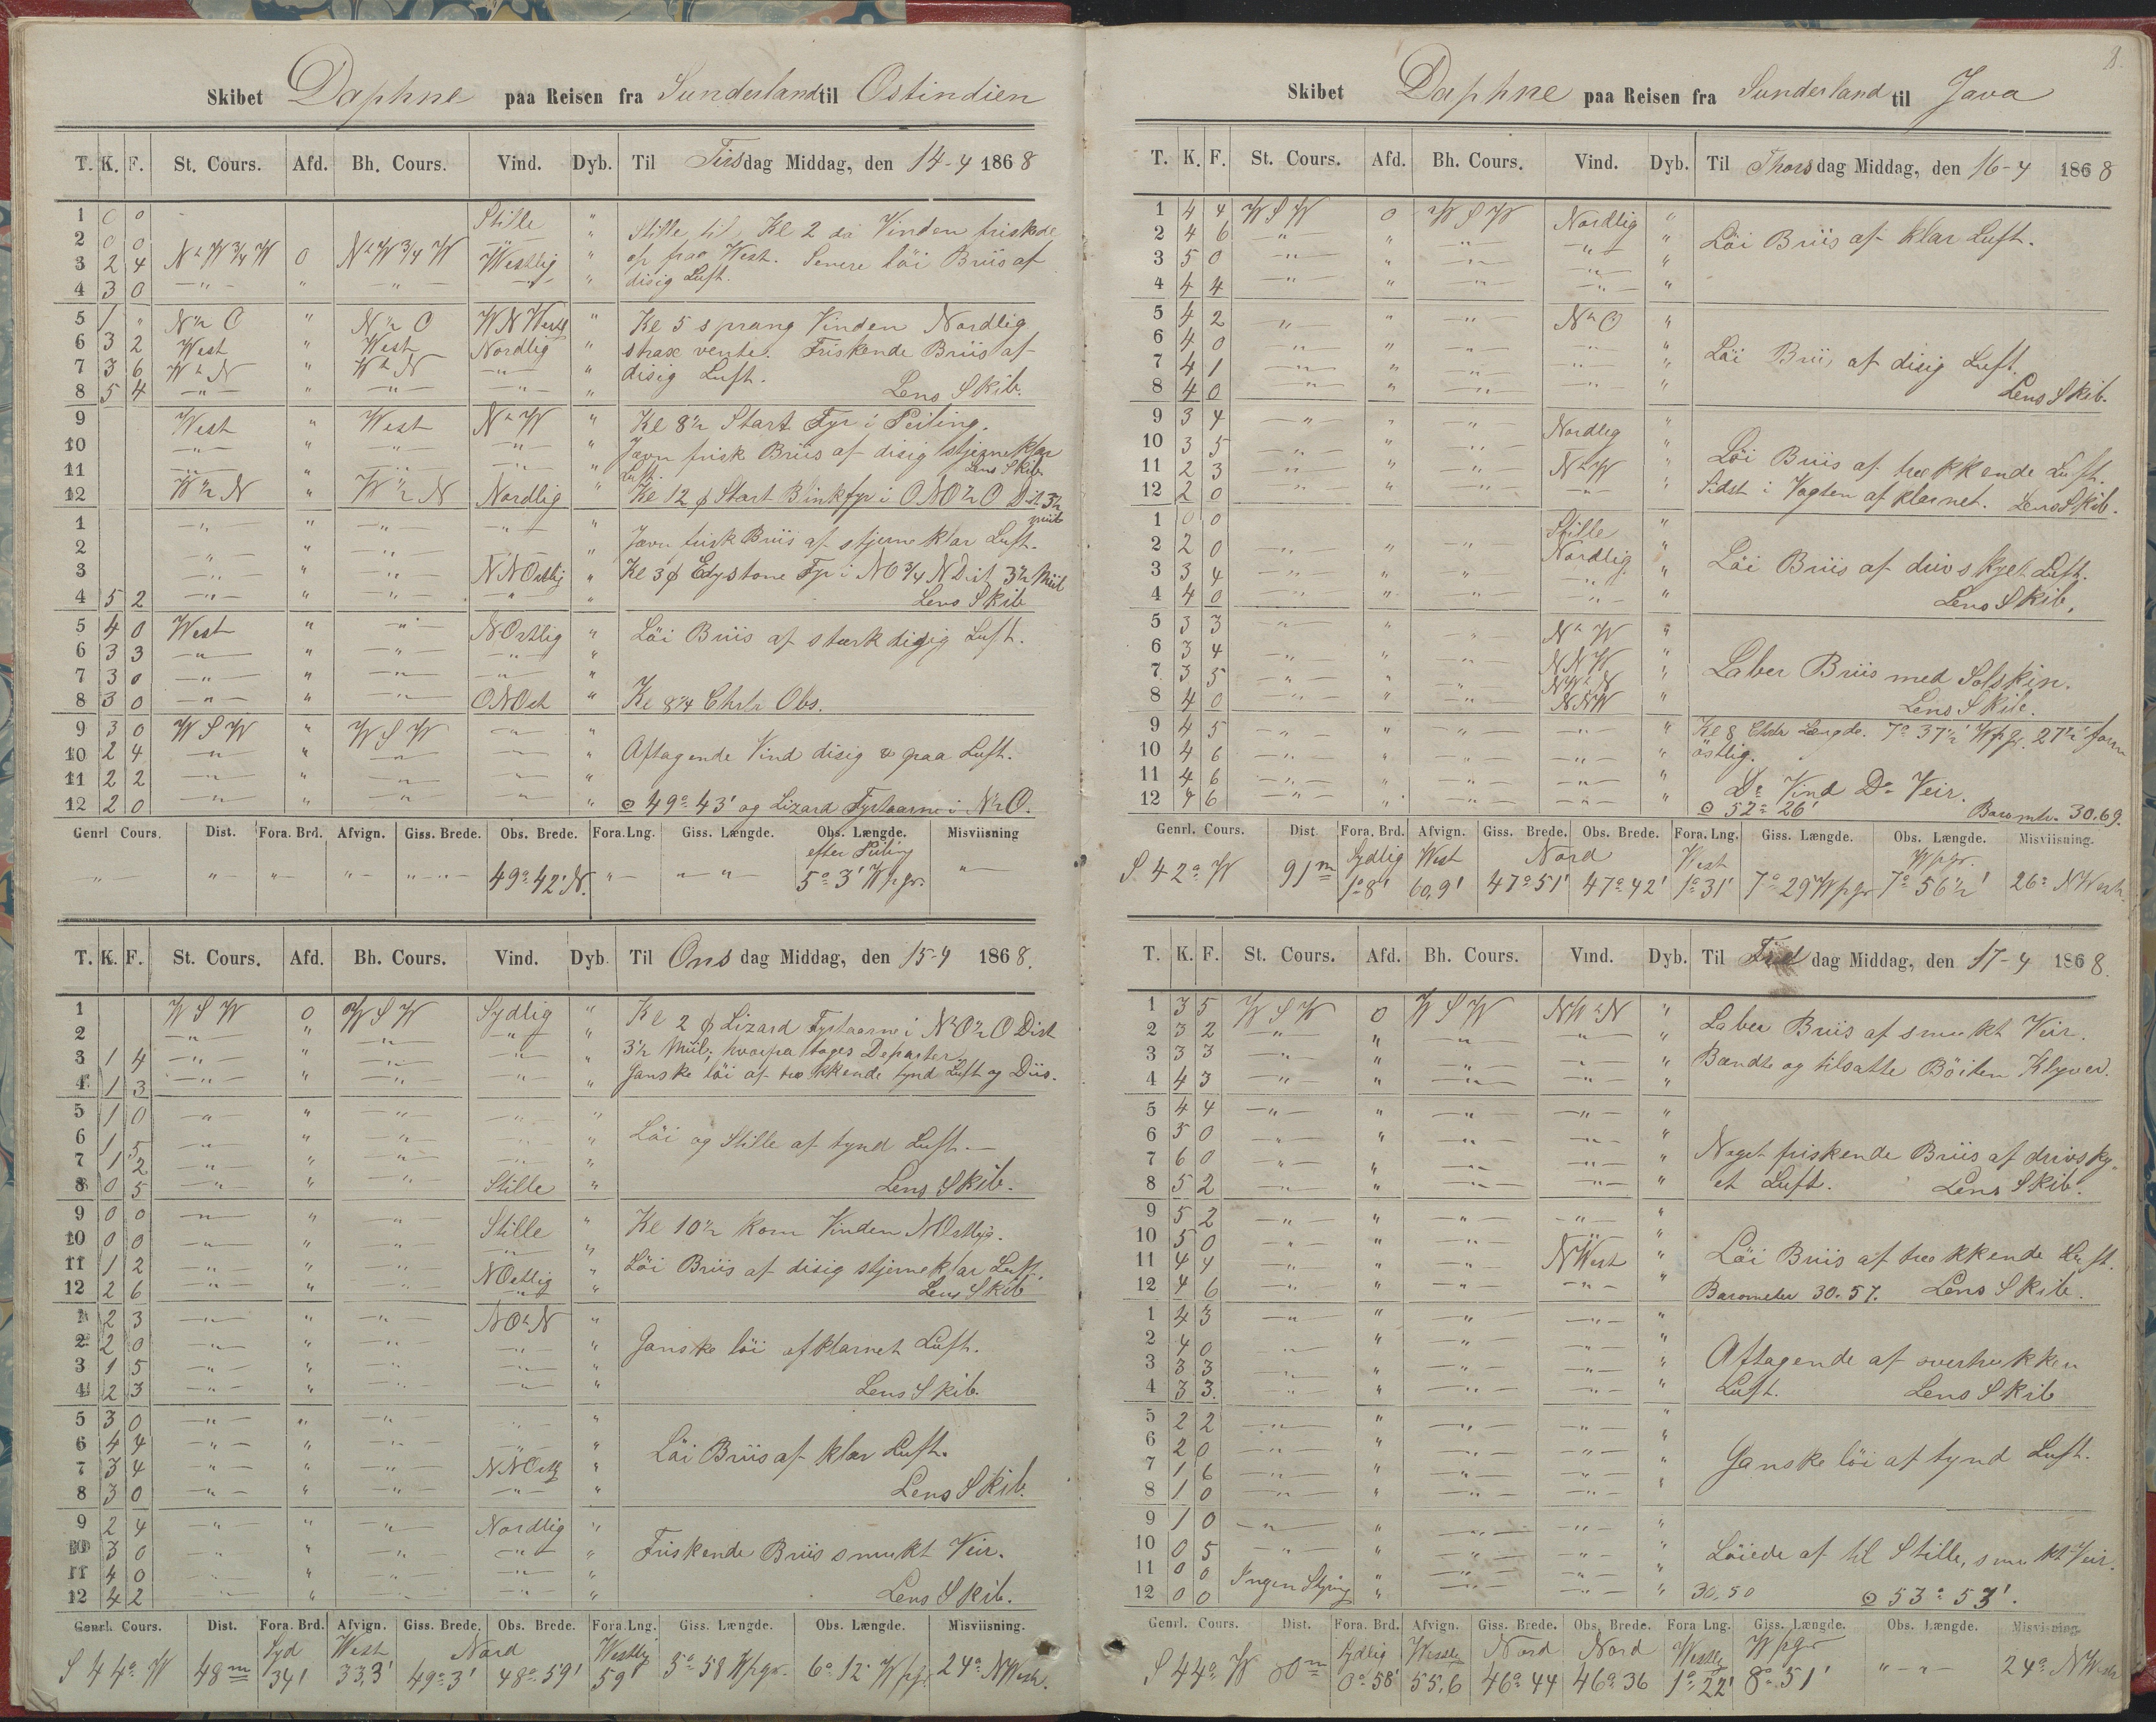 Skibet Daphne paa Reisen fra Sunderland til Ostindien
T. K. F. St. Cours. Afd. Bh. Cours. Vind. Dyb. Til Tirsdag Middag, den 14-4 1868
1 0 0 Stille "
2 0 0 " "
3 2 4 N n W 3/4 W 0 N n W 3/4 W Westlig "
4 3 0 — " — " — " — — " — "
Stille til Kl 2 da Vinden friskede
op fraa West. Senere löi Briis af
disig Luft.
5 1 " N n O " N n O WNWestl "
6 3 2 West " West Nordlig "
7 3 6 W n N " W n N — " — "
8 5 4 — " — " — " — — " — "
Kl 5 sprang Vinden Nordlig
strax vente. Friskende Briis af
disig Luft.
Lens Skib.
9 West " West N n W "
10 — " — " — " — — " — "
11 — " — " — " — — " — "
12 W n N " W n N Nordlig "
Kl 8½ Start Fyr i Peiling.
Jævn frisk Briis af disig stjerneklar
Luft. Lens Skib
Kl 12 ϕ Start Fyr i ONO½O Dist 3½
Miil
1 — " — " — " — — " — "
2 — " — " — " — "
3 — " — " — " — NNOstlig "
4 5 2 — " — " — " — — " — "
Jævn frisk Briis af stjerneklar Luft.
Kl 3 ϕ Edystone Fyr i NO 3/4 N Dist 3½ Miil
Lens Skib
5 4 0 West " — " — NOstlig "
6 3 3 — " — " — " — — " — "
7 3 0 — " — " — " — — " — "
8 3 0 — " — " — " — ONOst "
Löi Briis af stærk disig Luft.
Kl 8¼ Chrtr Obs.
9 3 0 WSW " WSW — " — "
10 2 4 — " — " — " — — " — "
11 2 2 — " — " — " — — " — "
12 2 0 — " — " — " — — " — "
Aftagende Vind disig paa Luft.
⊙ 49° 43' og Lizard Fyrtaarne i N½O.
Genrl Cours. Dist. Fora. Brd. Afvign. Giss. Brede. Obs. Brede. Fora. Lng. Giss. Længde. Obs. Længde. Misviisning
efter Peiling
— " — — " — — " — — " — — " — 49° 42' N. — " — — " — 5° 3' Wpgr. — " —
T. K. F. St. Cours. Afd. Bh. Cours. Vind. Dyb. Til Onsdag Middag, den 15-4 1868.
1 WSW 0 WSW Sydlig "
2 — " — " — " — — " — "
3 1 4 — " — " — " — — " — "
4 1 3 — " — " — " — — " — "
Kl 2 ϕ Lizard Fyrtaarne i N½O½O Dist
3½ Miil; hvorpa tages Departer
Ganske löi af trækkende tynd Luft og Diis.
5 1 0 — " — " — " — — " — "
6 1 5 — " — " — " — — " — "
7 1 2 — " — " — " — — " — "
8 0 5 — " — " — " — Stille "
Löi og Stille af tynd Luft.—
Lens Skib.
9 0 0 — " — " — " — Stille "
10 0 0 — " — " — " — — " — "
11 1 2 — " — " — " — NOstlig "
12 2 6 — " — " — " — — " — "
Kl 10½ kom Vinden NOstlig.
Löi Briis af disig stjerneklar Luft.
Lens Skib
1 2 3 — " — " — " — NOnN "
2 2 0 — " — " — " — — " — "
3 1 5 — " — " — " — — " — "
4 2 3 — " — " — " — — " — "
Ganske löi afklarnet Luft.
Lens Skib.
5 3 0 — " — " — " — — " — "
6 4 4 — " — " — " — — " — "
7 3 4 — " — " — " — NNOstlg "
8 3 0 — " — " — " — — " — "
Löi Briis af klar Luft.
Lens Skib.
9 2 4 — " — " — " — Nordlig "
10 3 0 — " — " — " — — " — "
11 4 0 — " — " — " — — " — "
12 4 2 — " — " — " — — " — "
Friskende Briis smukt Veir.
Lens Skib.
Genrl. Cours. Dist. Fora. Brd. Afvign. Giss. Brede. Obs. Brede. Fora. Lng. Giss. Længde. Obs. Længde. Misviisning.
Syd West Nord Westlig
S 44° W 48 m 34' 33,3' 49° 3' 48° 59' 59' 5° 58 Wpgr. 6° 12' Wpgr. 24° NWestr.
8.
Skibet Daphne paa Reisen fra Sunderland til Java
T. K. F. St. Cours. Afd. Bh. Cours. Vind. Dyb. Til Thorsdag Middag, den 16-4 1868
1 4 4 WSW 0 WSW Nordlig "
2 4 6 — " — " — " — — " — "
3 5 0 — " — " — " — — " — "
4 4 4 — " — " — " — — " — "
Löi Briis af klar Luft.
5 4 2 " " — " — N n O "
6 4 0 — " — " — " — — " — "
7 4 1 — " — " — " — — " — "
8 4 0 — " — " — " — — " — "
Löi Briis af disig Luft.
Lens Skib.
9 3 4 — " — " — " — Nordlig "
10 3 5 — " — " — " — "
11 2 3 — " — " — " — N n W "
12 2 0 — " — " — " — — " — "
Löi Briis af trækkende Luft.
Sidst i Vagten afklarnet. Lens Skib.
1 0 0 Stille "
2 2 0 — " — " — " — Nordlig "
3 3 4 — " — " — " — — " — "
4 4 0 — " — " — " — — " — "
Löi Briis af drivskyet Luft.
Lens Skib.
5 3 3 — " — " — " — N n W "
6 3 4 — " — " — " — NNW "
7 3 5 — " — " — " — NWnN "
8 4 0 — " — " — " — NNW "
Laber Briis med Solskin.
Lens Skib.
9 4 5 — " — " — " — — " — "
10 4 6 — " — " — " — — " — "
11 4 6 — " — " — " — — " — "
12 4 6 — " — " — " — — " — "
Kl 8 Chrtr Længde. 7° 37½' Wpgr. 27½'
östlig.
Do Vind Do Veir.
⊙ 52° 26' Baromtr. 30.69.
Genrl. Cours. Dist. Fora. Brd. Afvign. Giss. Brede. Obs. Brede. Fora. Lng. Giss. Længde. Obs. Længde. Misviisning.
Sydlig West Nord West Wpgr.
S 42° W 91 m 1° 8' 60,9' 47° 51' 47° 42' 1° 31' 7° 29' Wpgr 7° 56½' 26° NWestr
T. K. F. St. Cours. Afd. Bh. Cours. Vind. Dyb. Til Fredag Middag, den 17-4 1868.
1 3 5 WSW 0 WSW NWnN "
2 3 2 — " — " — " — — " — "
3 3 3 — " — " — " — — " — "
4 4 3 — " — " — " — — " — "
Laber Briis af smukt Veir.
Bændte og tilsatte Klyver.
5 4 4 — " — " — " — — " — "
6 5 0 — " — " — " — — " — "
7 6 0 — " — " — " — — " — "
8 5 2 — " — " — " — — " — "
Noget friskende Briis af drivsky-
et Luft. Lens Skib.
9 5 2 — " — " — " — — " — "
10 5 0 — " — " — " — " "
11 4 4 — " — " — " — NWest "
12 4 6 — " — " — " — — " — "
Löi Briis af trækkende Luft.
Barometer 30.57. Lens Skib.
1 4 3 — " — " — " — — " — "
2 4 0 — " — " — " — — " — "
3 3 3 — " — " — " — — " — "
4 3 3 — " — " — " — — " — "
Aftagende af overtrukken
Luft. Lens Skib
5 2 2 — " — " — " — — " — "
6 2 0 — " — " — " — — " — "
7 1 6 — " — " — " — — " — "
8 1 0 — " — " — " — — " — "
Ganske löi af tynd Luft.
9 1 0 — " — " — " — — " — "
10 0 5 — " — " — " — — " — "
11 0 0 Ingen Styring " — " — — " — "
12 0 0 " — " — — " — "
Löiede af til Stille, smukt Veir
30,50 ⊙ 53° 53'.
Genrl. Cours. Dist. Fora. Brd. Afvign. Giss. Brede. Obs. Brede. Fora Lng. Giss. Længde. Obs. Længde. Misvisning.
Sydlig Westlig Nord Nord Westlig Wpgr
S 44° W 80 m 0° 58' 55,6 46° 44 46° 36 1° 22' 8° 51' " — " 24° NWestr